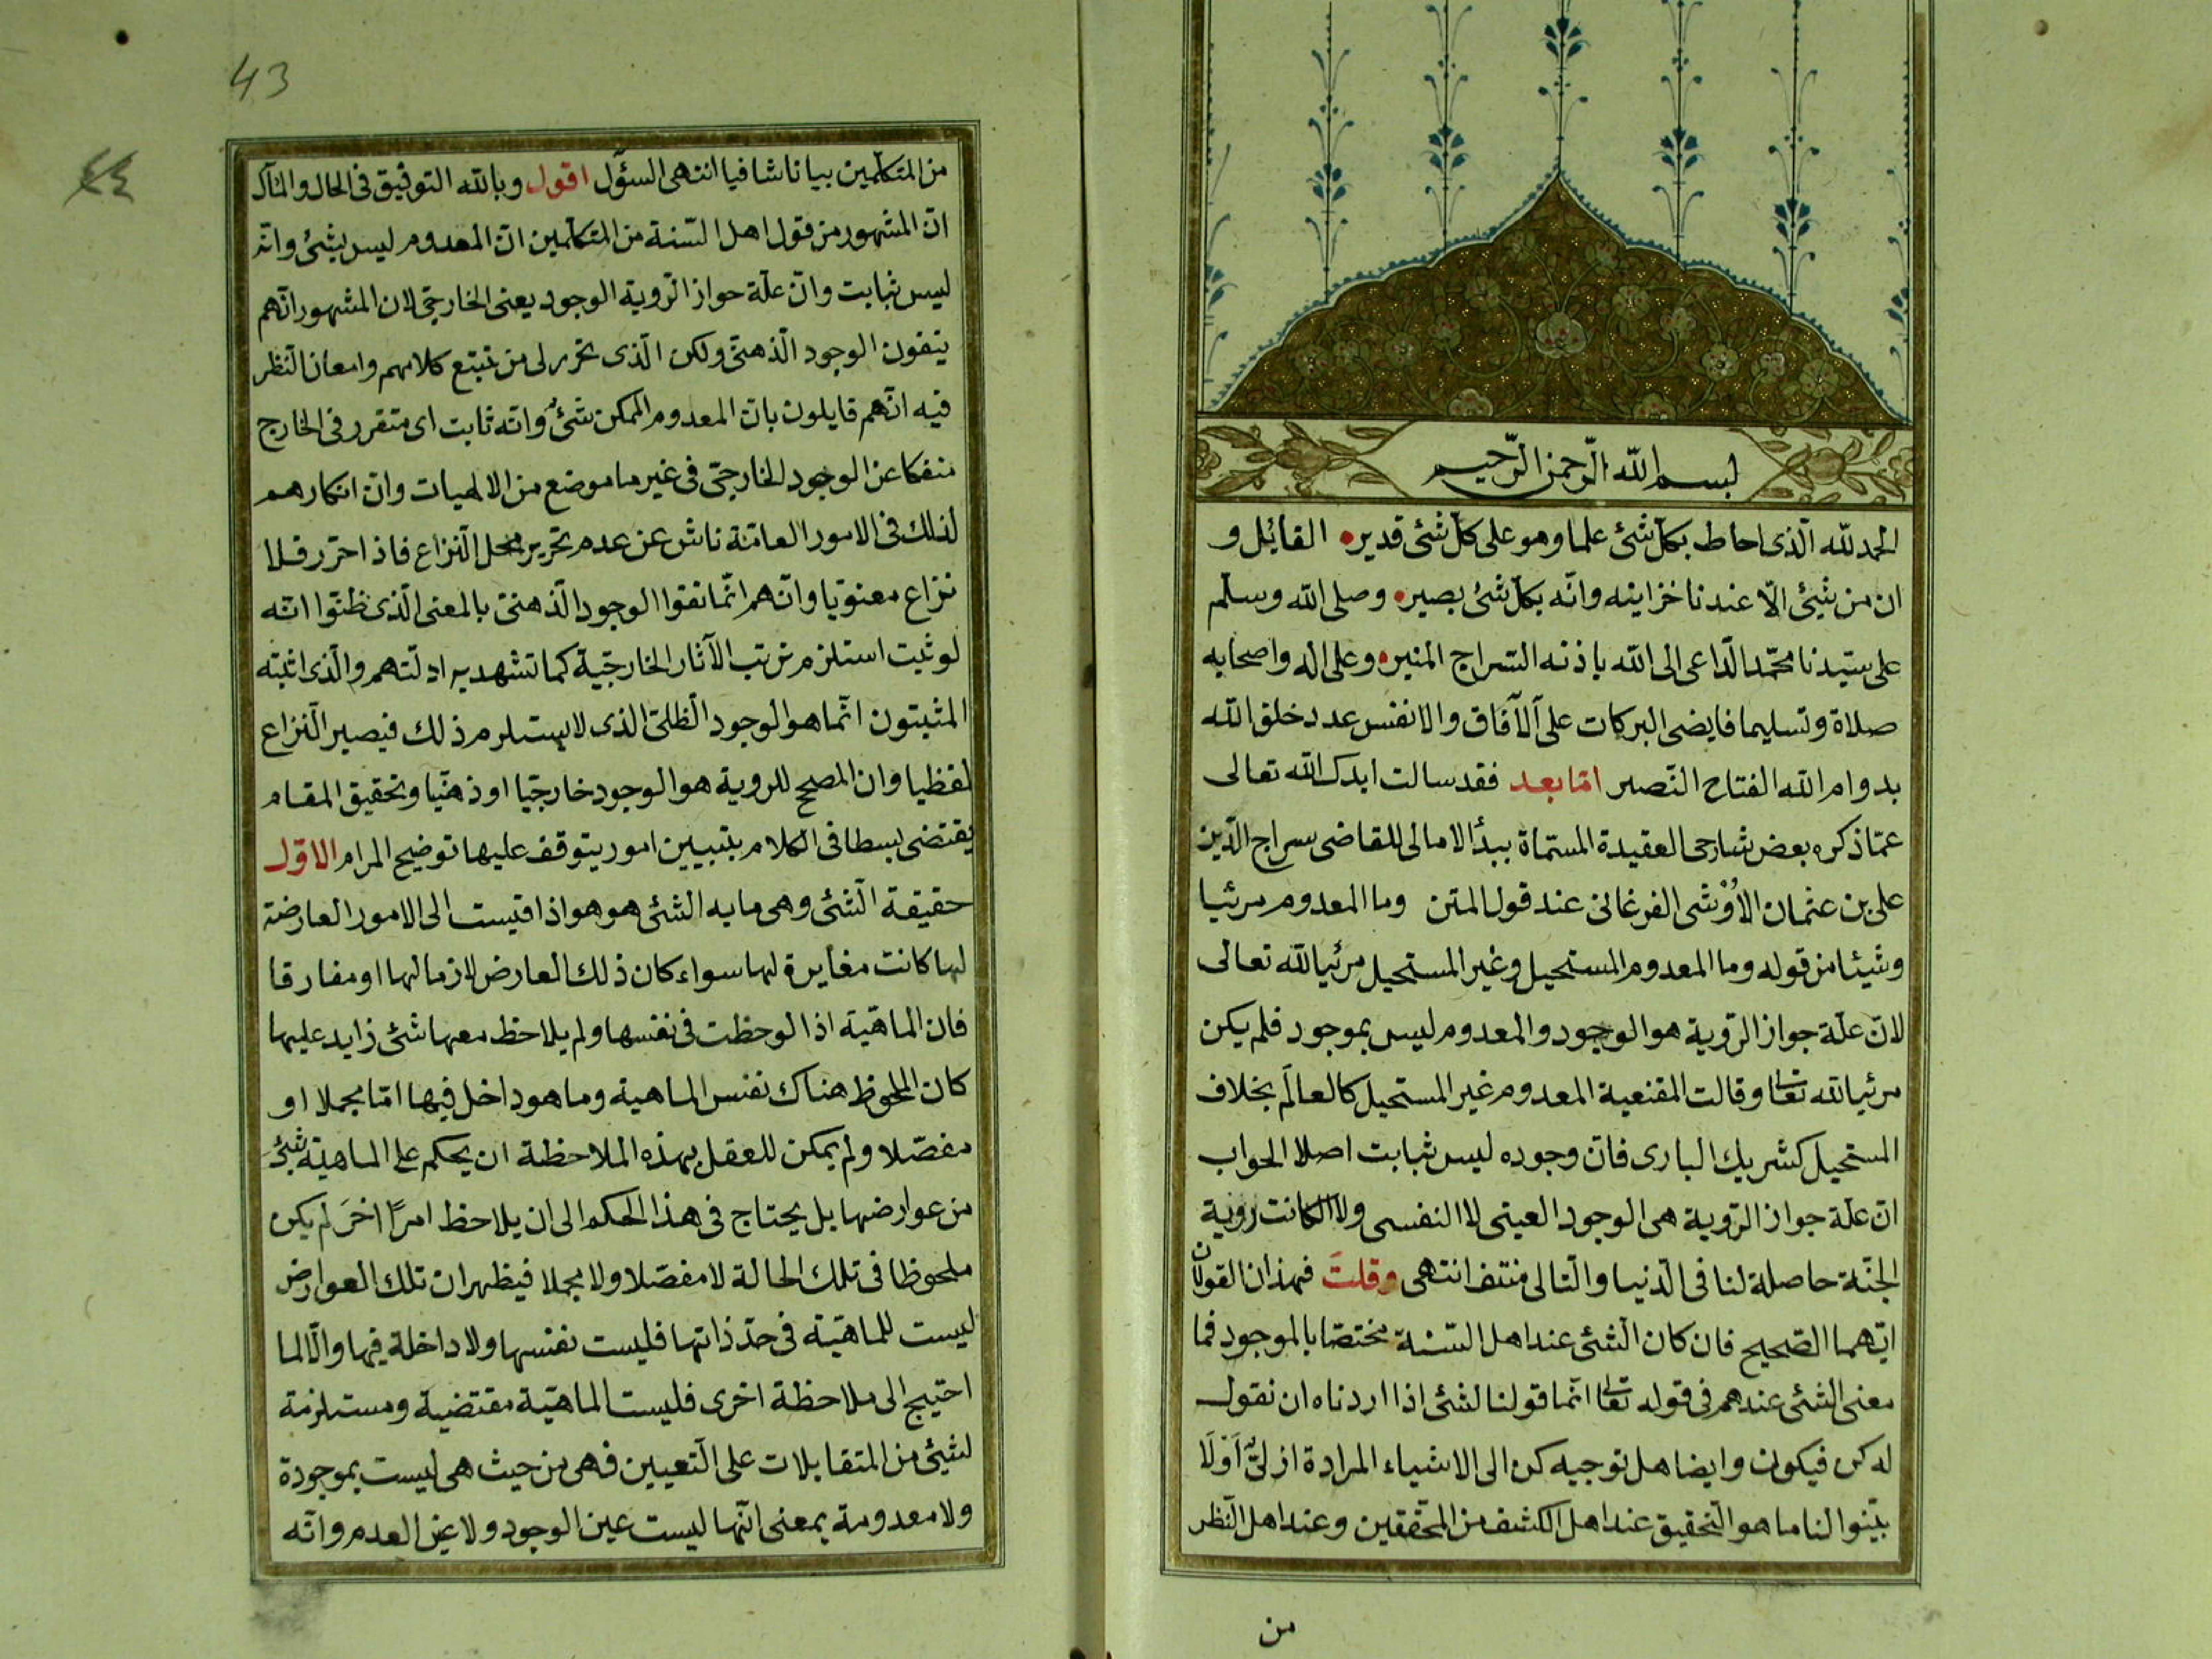 بسم الله الرّحمن الرّحيم
الحمد لله الّذى احاط بكلّ شئ علما وهو على كلّ شئ قدير القائل و
ان من شيئ الّا عندنا خزاينه وانّه بكلّ شئ بصير وصلى الله وسلّم
على سيّدنا محمّد الدّاعى الى الله باذنه السّراج المنير وعلى اله واصحابه
صلاة وتسليما فايضى البركات على الآفاق والانفس عدد خلق الله
بدوام الله الفتاح النّصير امّا بعد فقد سالت ايدك الله تعالى
عمّا ذكره بعض شارحى العقيدة المسمّاة ببدأ الامالى للقاضى سراج الدّين
على بن عثمان الاُوْشى الفرغانى عند قول المتن وما المعدوم مرئيا
وشيئا من قوله وما المعدوم المستحيل وغير المستحيل مرئيا لله تعالى
لانّ علّة جواز الرّوية هو الوجود والمعدوم ليس بموجود فلم يكن
مرئيا لله تعا وقالت المقنعية المعدوم غير المستحيل كالعالَم بخلاف
المستحيل كشريك البارى فانّ وجوده ليس ثبابت اصلا الجواب
انّ علّة جواز الرّوية هى الوجود العينى لا النفسى ولا لكانت روية
الجنّة حاصلة لنا فى الدّنيا والتّالى منتف انتهى وقلتَ فهذان القولان
ايّهما الصّحيح فان كان الشّئ عند اهل السّنة مختصّا بالموجود فما
معنى الشئ عندهم فى قوله تعا انّما قولنا لشئ اذا اردناه ان نقول
له كن فيكون وايضا هل توجيه كن الى الاشياء المرادة ازلىّ اَوْلَا
بيّنوا لنا ما هو التّحقيق عند اهل الكشف من المحقّقين وعند اهل النّظر
من
43
٤٤
من المتكلّمين بيانا شافيا انتهى السؤٓل اقول وبالله التوفيق فى الحال والمآل
انّ المشهور من قول اهل السّنة من المتكلّمين انّ المعدوم ليس بشئ وانّه
ليس ثبابت وانّ علّة جواز الرّوية الوجود يعنى الخارجىّ لان المشهور انّهم
ينفون الوجود الّذهنىّ ولكن الّذى تحرر لى من تتبّع كلامهم وامعان النّظر
فيه انّهم قايلون بانّ المعدوم الممكن شئٌ وانّه ثابت اى متقرر فى الخارج
منفكا عن الوجود الخارجىّ فى غير ما موضع من الالهيات وانّ انكارهم
لذلك فى الامور العامّة ناش عن عدم تحرير محل النّزاع فاذا حرّر فلا
نزاع معنويّا وانّهم انّما نفوا الوجود الذّهنىّ بالمعنى الّذى ظنّوا انّه
لو ثبت استلزم ترتب الآثار الخارجيّة كما تشهد به ادلّتهم والّذى اثبته
المثبتون انّما هو الوجود الظّلىّ الذى لا يستلزم ذلك فيصير النّزاع
لفظيا وان المصحح للروية هو الوجود خارجيّا او ذهنيّا وتحقيق المقام
يقتضى بسطا فى الكلام بتبيين امور يتوقف عليها توضيح المرام الاوّل
حقيقة الشّئ وهى ما به الشئ هو هو اذا قيست الى الامور العارضة
لها كانت مغايرة لها سواء كان ذلك العارض لازما لها او مفارقا
فان الماهيّة اذا لوحظت فى نفسها ولم يلاحظ معها شئ زايد عليها
كان الملحوظ هناك نفس الماهية وما هو داخل فيها امّا مجملا او
مفصّلا ولم يمكن للعقل بهذه الملاحظة ان يحكم على الماهيّة بشئ
من عوارضها بل يحتاج فى هذا الحكم الى ان يلاحظ امرًا اخرَ لم يكن
ملحوظا فى تلك الحالة لا مفصّلا ولا مجملا فيظهر ان تلك العوارض
ليست للماهيّة فى حدّ ذاتها فليست نفسها ولا داخلة فيها والّا لما
احتيج الى ملاحظة اخرى فليست الماهيّة مقتضية ومستلزمة
لشئ من المتقابلات على التّعيين فهى من حيث هى ليست بموجودة
ولا معدومة بمعنى انّها ليست عين الوجود ولا عين العدم وانّه